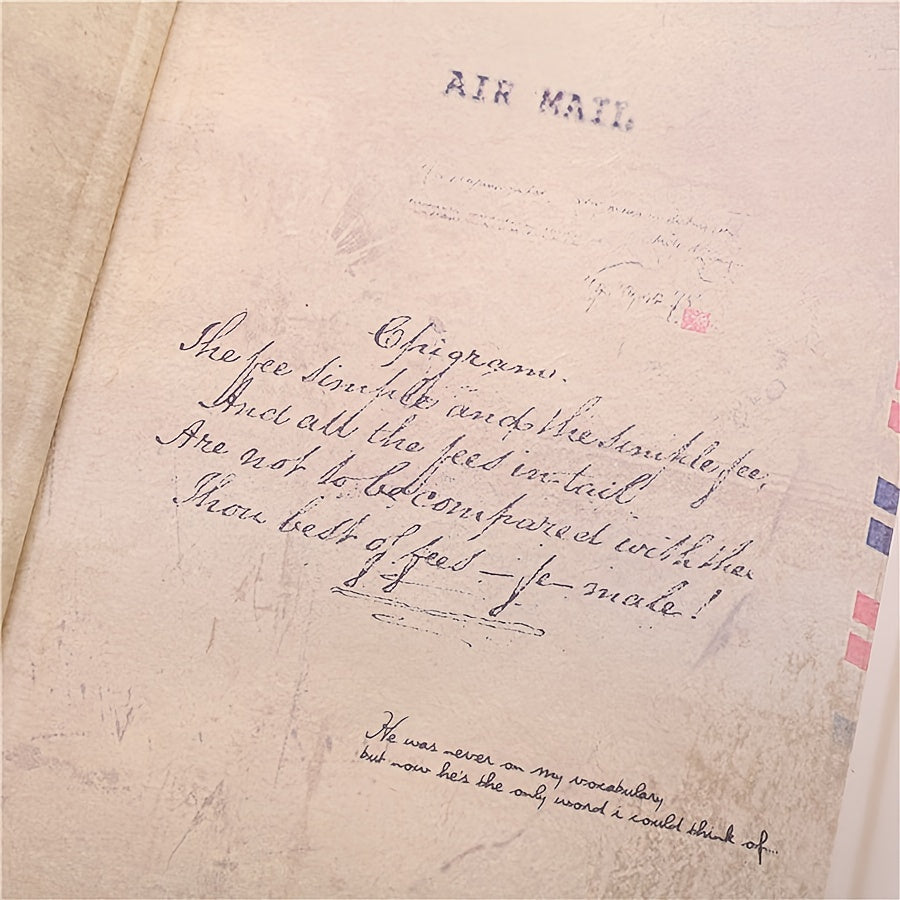 AIR MAIL
Epigram.
The fee simple and the simple fee,
And all the fees in tail
Are not to be compared with thee
Thou best of fees — fe — male!
He was never on my vocabulary
but now he's the only word i could think of...